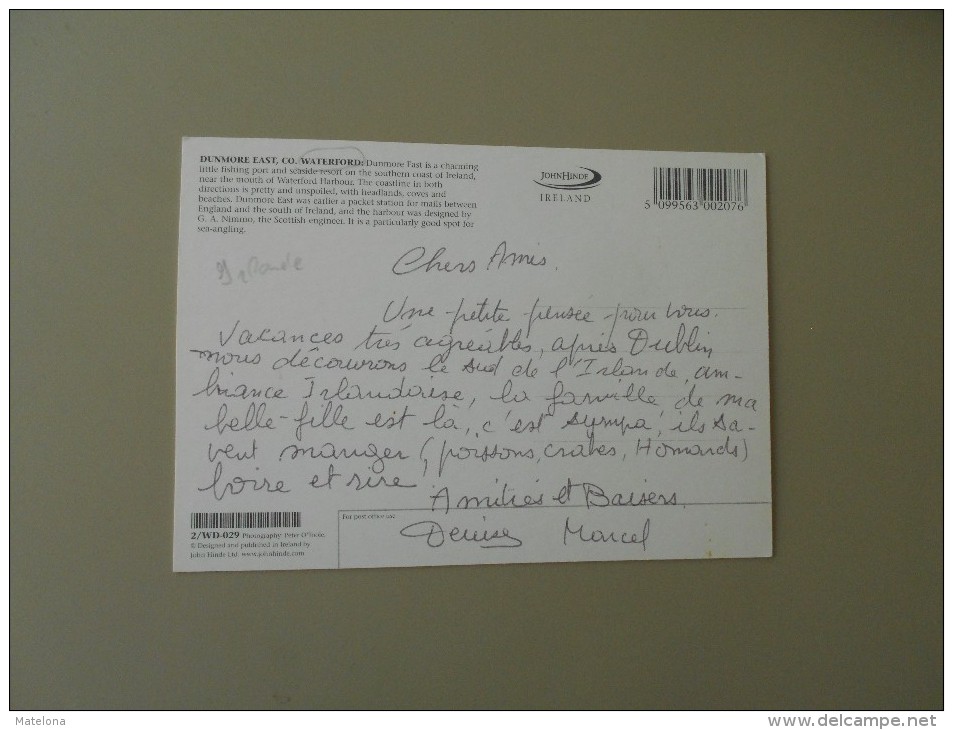 DUNMORE EAST, CO. WATERFORD: Dunmore East is a charming
little fishing port and seaside resort on the southern coast of Ireland,
near the mouth of Waterford Harbour. The coastline in both
directions is pretty and unspoiled, with headlands, coves and
beaches. Dunmore East was earlier a packet station for mails between
England and the south of Ireland, and the harbour was designed by
G. A. Nimmo, the Scottish engineer. It is a particularly good spot for
sea-angling.
JOHN HINDE
IRELAND
5 099563 002076
Irlande
Chers Amis.
Une petite pensée pour vous.
Vacances très agréables, après Dublin
nous découvrons le sud de l'Irlande, am-
biance Irlandaise, la famille de ma
belle-fille est là, c'est sympa, ils sa-
vent manger (poissons, crabes, Homards)
boire et rire
Amitiés et Baisers.
Denise Marcel
For post office use
2/WD-029 Photography: Peter O'Toole,
© Designed and published in Ireland by
John Hinde Ltd. www.johnhinde.com
Matelona
www.delcampe.net